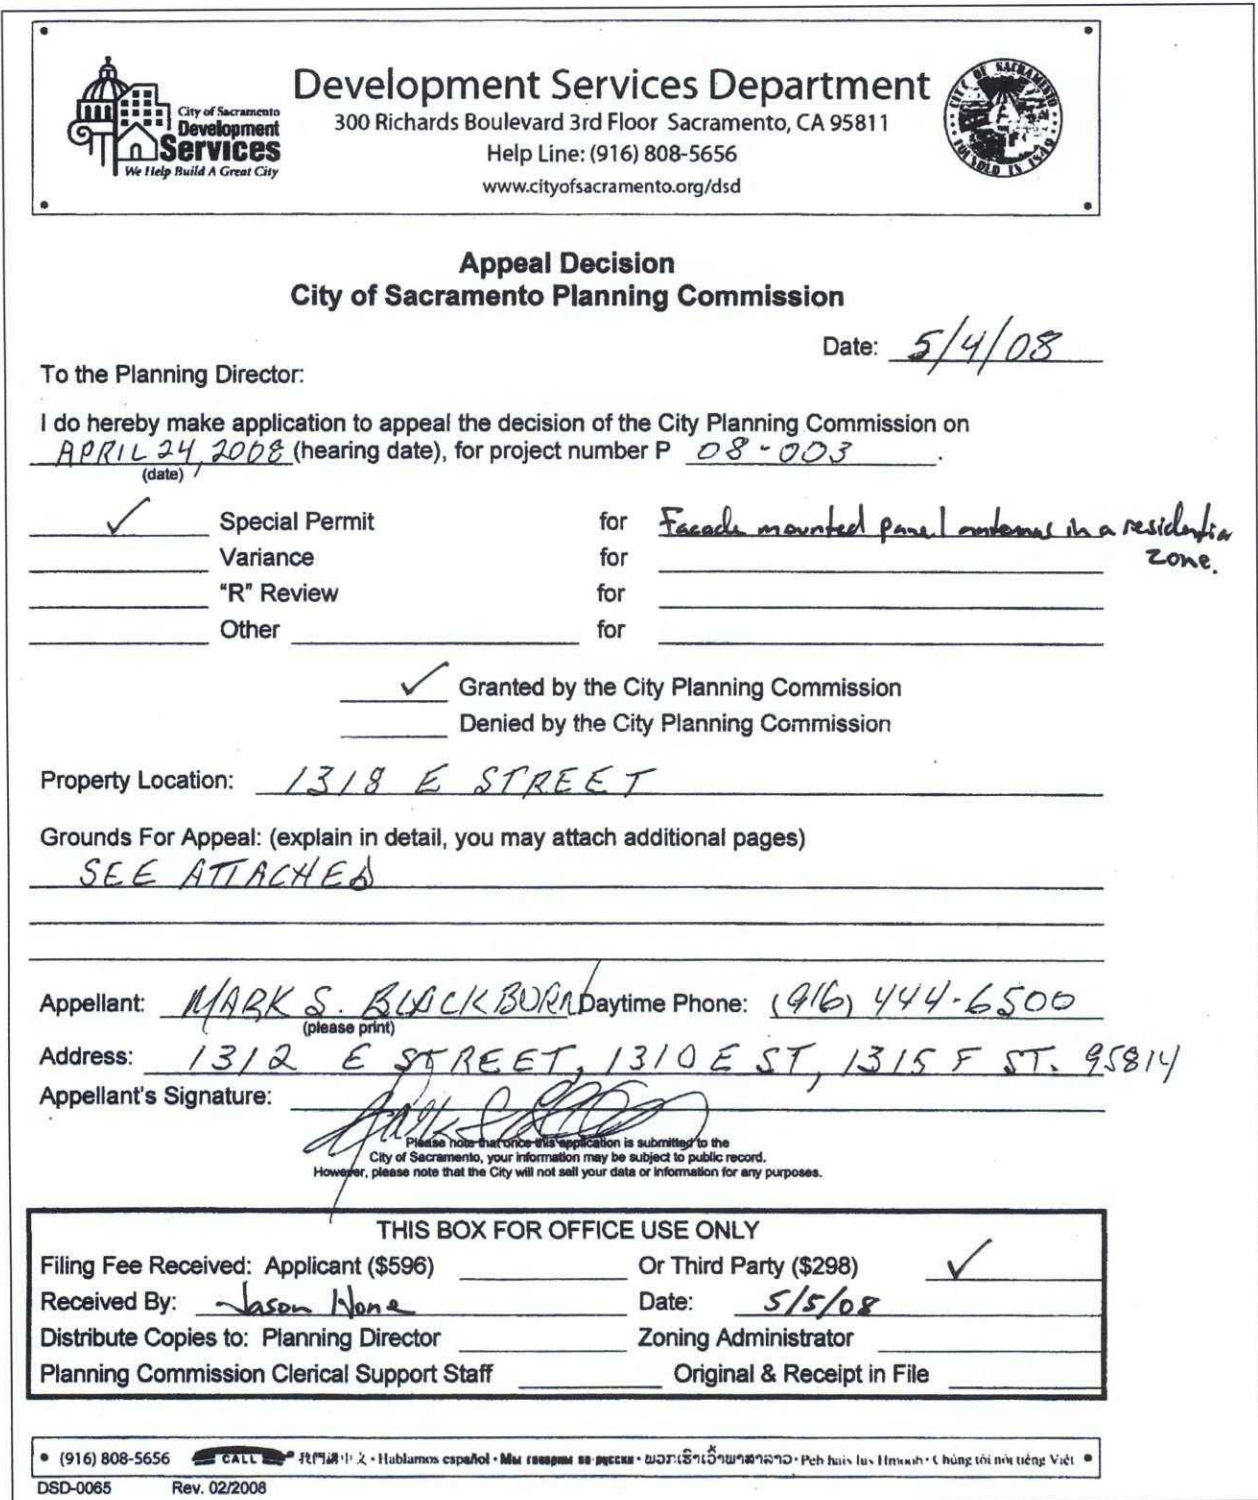 City of Sacramento
Development
Services
We Help Build A Great City
Development Services Department
300 Richards Boulevard 3rd Floor Sacramento, CA 95811
Help Line: (916) 808-5656
www.cityofsacramento.org/dsd
CITY OF SACRAMENTO
FOUNDED IN 1849
Appeal Decision
City of Sacramento Planning Commission
Date: 5/4/08
To the Planning Director:
I do hereby make application to appeal the decision of the City Planning Commission on
APRIL 24, 2008 (hearing date), for project number P 08-003.
(date)
✓ Special Permit for Facade mounted panel antennas in a residential
zone.
Variance for
"R" Review for
Other for
✓ Granted by the City Planning Commission
Denied by the City Planning Commission
Property Location: 1318 E STREET
Grounds For Appeal: (explain in detail, you may attach additional pages)
SEE ATTACHED
Appellant: MARK S. BLACKBURN Daytime Phone: (916) 444-6500
(please print)
Address: 1312 E STREET, 1310 E ST, 1315 F ST. 95814
Appellant's Signature:
Please note that once this application is submitted to the
City of Sacramento, your information may be subject to public record.
However, please note that the City will not sell your data or information for any purposes.
THIS BOX FOR OFFICE USE ONLY
Filing Fee Received: Applicant ($596) Or Third Party ($298) ✓
Received By: Jason Hone Date: 5/5/08
Distribute Copies to: Planning Director Zoning Administrator
Planning Commission Clerical Support Staff Original & Receipt in File
• (916) 808-5656 CALL 我們講中文 • Hablamos español • Мы говорим по-русски • ພວກເຮົາເວົ້າພາສາລາວ • Peb hais lus Hmoob • Chúng tôi nói tiếng Việt •
DSD-0065 Rev. 02/2008